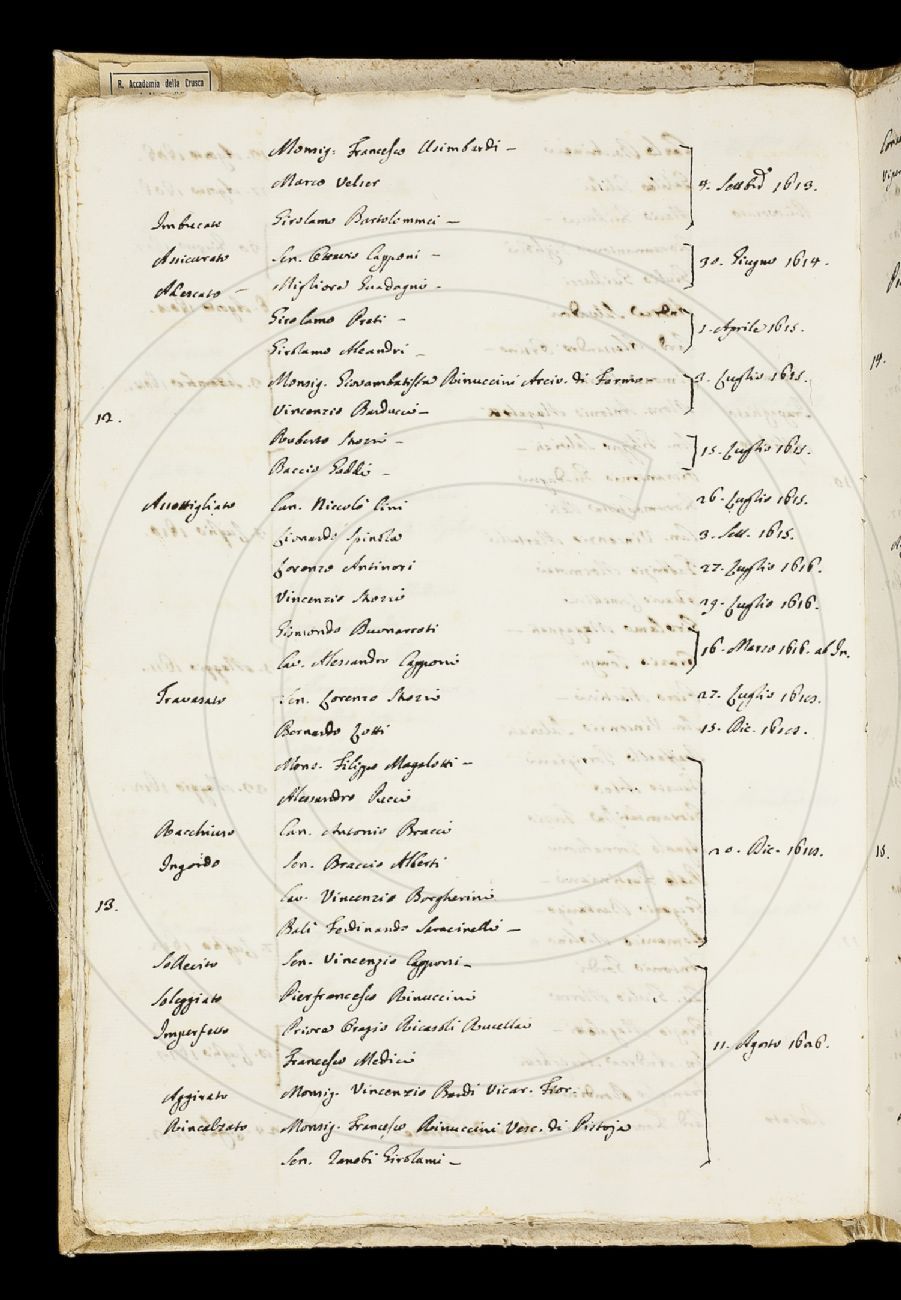 R. Accademia della Crusca
Monsig. Francesco Usimbardi –
Marco Velser 4. Settbre 1613.
Imbucato Girolamo Bartolommei –
Assicurato Sen. Ottavio Capponi – 30. Giugno 1614.
Adescato – Migliore Guadagni –
Girolamo Preti – 1. Aprile 1615.
Girolamo Aleandri –
Monsig. Giovambatista Rinuccini Arciv. di Fermo – 3. Luglio 1615.
12. Vincenzio Barducci –
Ruberto Strozzi – 15. Luglio 1615.
Baccio Gaddi –
Assottigliato Can. Niccolò Cini 26. Luglio 1615.
Lionardo Spinola 3. Sett. 1615.
Lorenzo Antinori 27. Luglio 1616.
Vincenzio Strozzi 29. Luglio 1616.
Sismondo Buonarroti
Cav. Alessandro Capponi 16. Marzo 1616. ab In.
Travasato Sen. Lorenzo Strozzi 27. Luglio
Bernardo Lotti 15. Dic.
Mons. Filippo Magalotti –
Alessandro Pucci
Racchiuso Can. Antonio Bracci 20. Dic.
Ingordo Sen. Braccio Alberti
Cav. Vincenzio Borgherini
13. Balì Ferdinando Saracinelli –
Sollecito Sen. Vincenzio Capponi –
Soleggiato Pierfrancesco Rinuccini
Imperfetto Priore Orazio Ricasoli Rucellai
Francesco Medici 11. Agosto
Aggirato Monsig. Vincenzio Bardi Vicar. Fior.
Rincalzato Monsig. Francesco Rinuccini Vesc. di Pistoja
Sen. Zanobi Girolami –
14.
15.